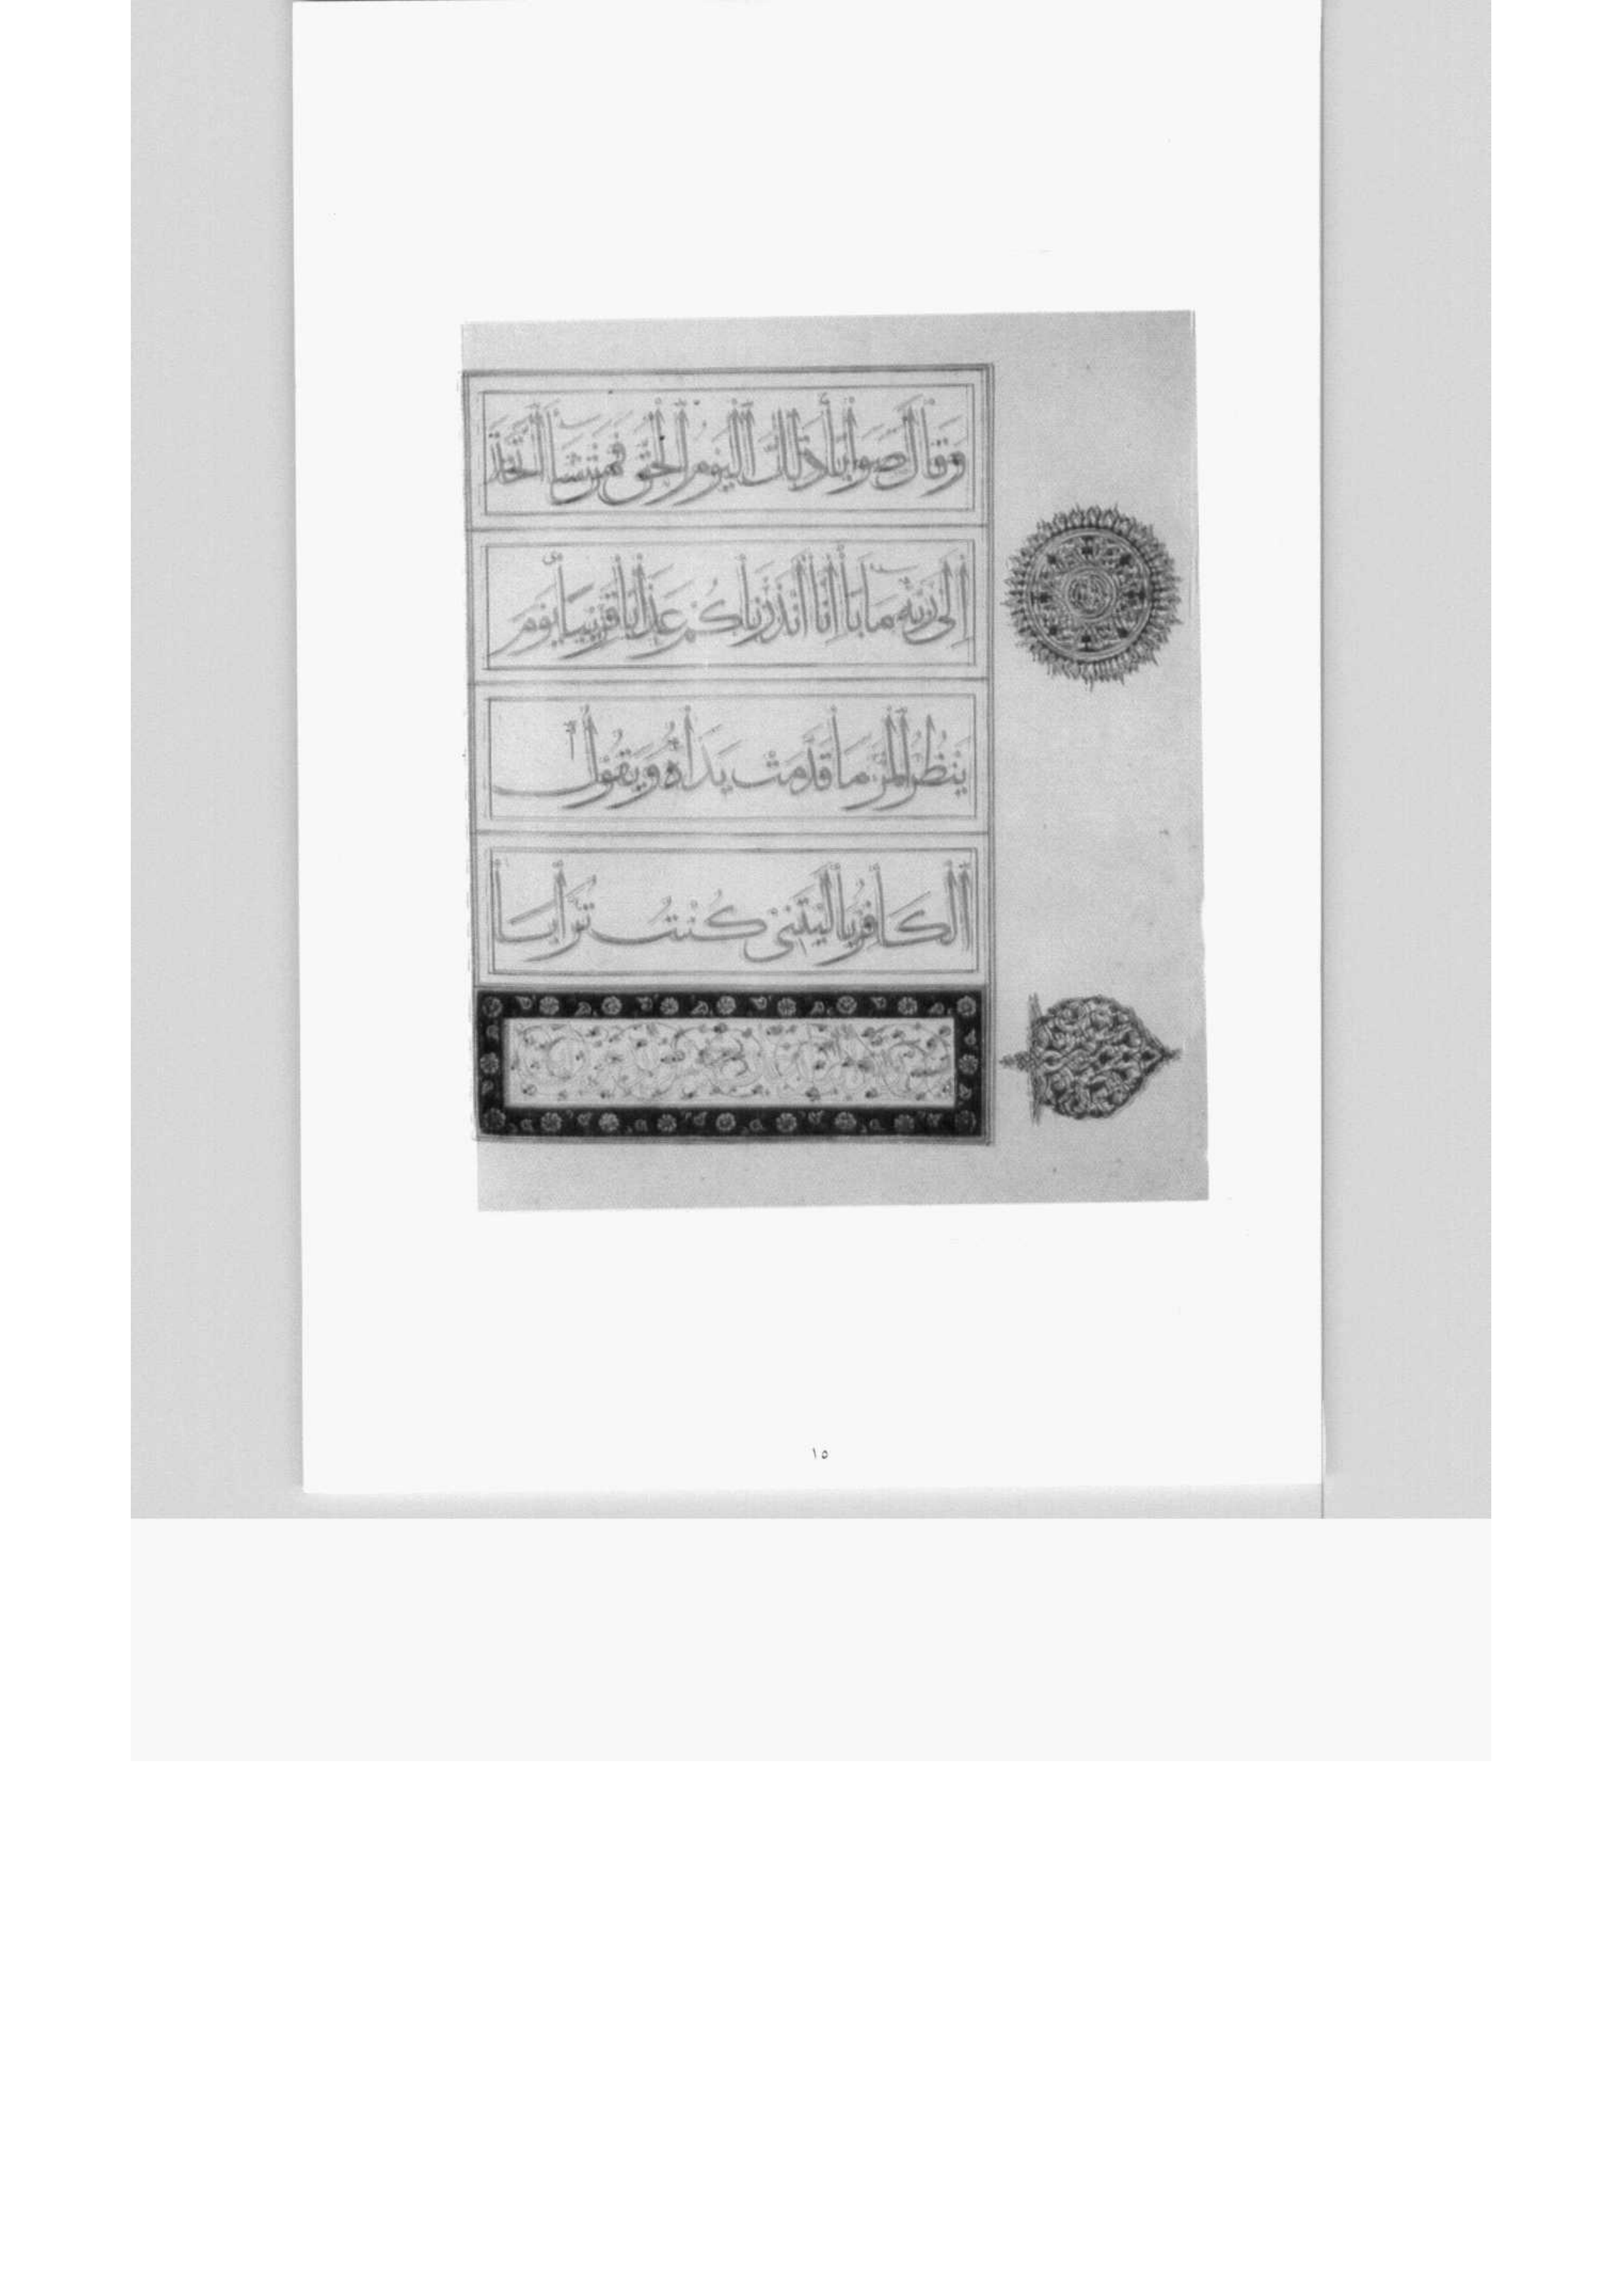 وَقَالَ صَوَابًا ذَلِكَ الْيَوْمُ الْحَقُّ فَمَنْ شَاءَ اتَّخَذَ
إِلَى رَبِّهِ مَابًا إِنَّا أَنْذَرْنَاكُمْ عَذَابًا قَرِيبًا يَوْمَ
يَنْظُرُ الْمَرْءُ مَا قَدَّمَتْ يَدَاهُ وَيَقُولُ
الْكَافِرُ يَالَيْتَنِي كُنْتُ تُرَابًا
١٥